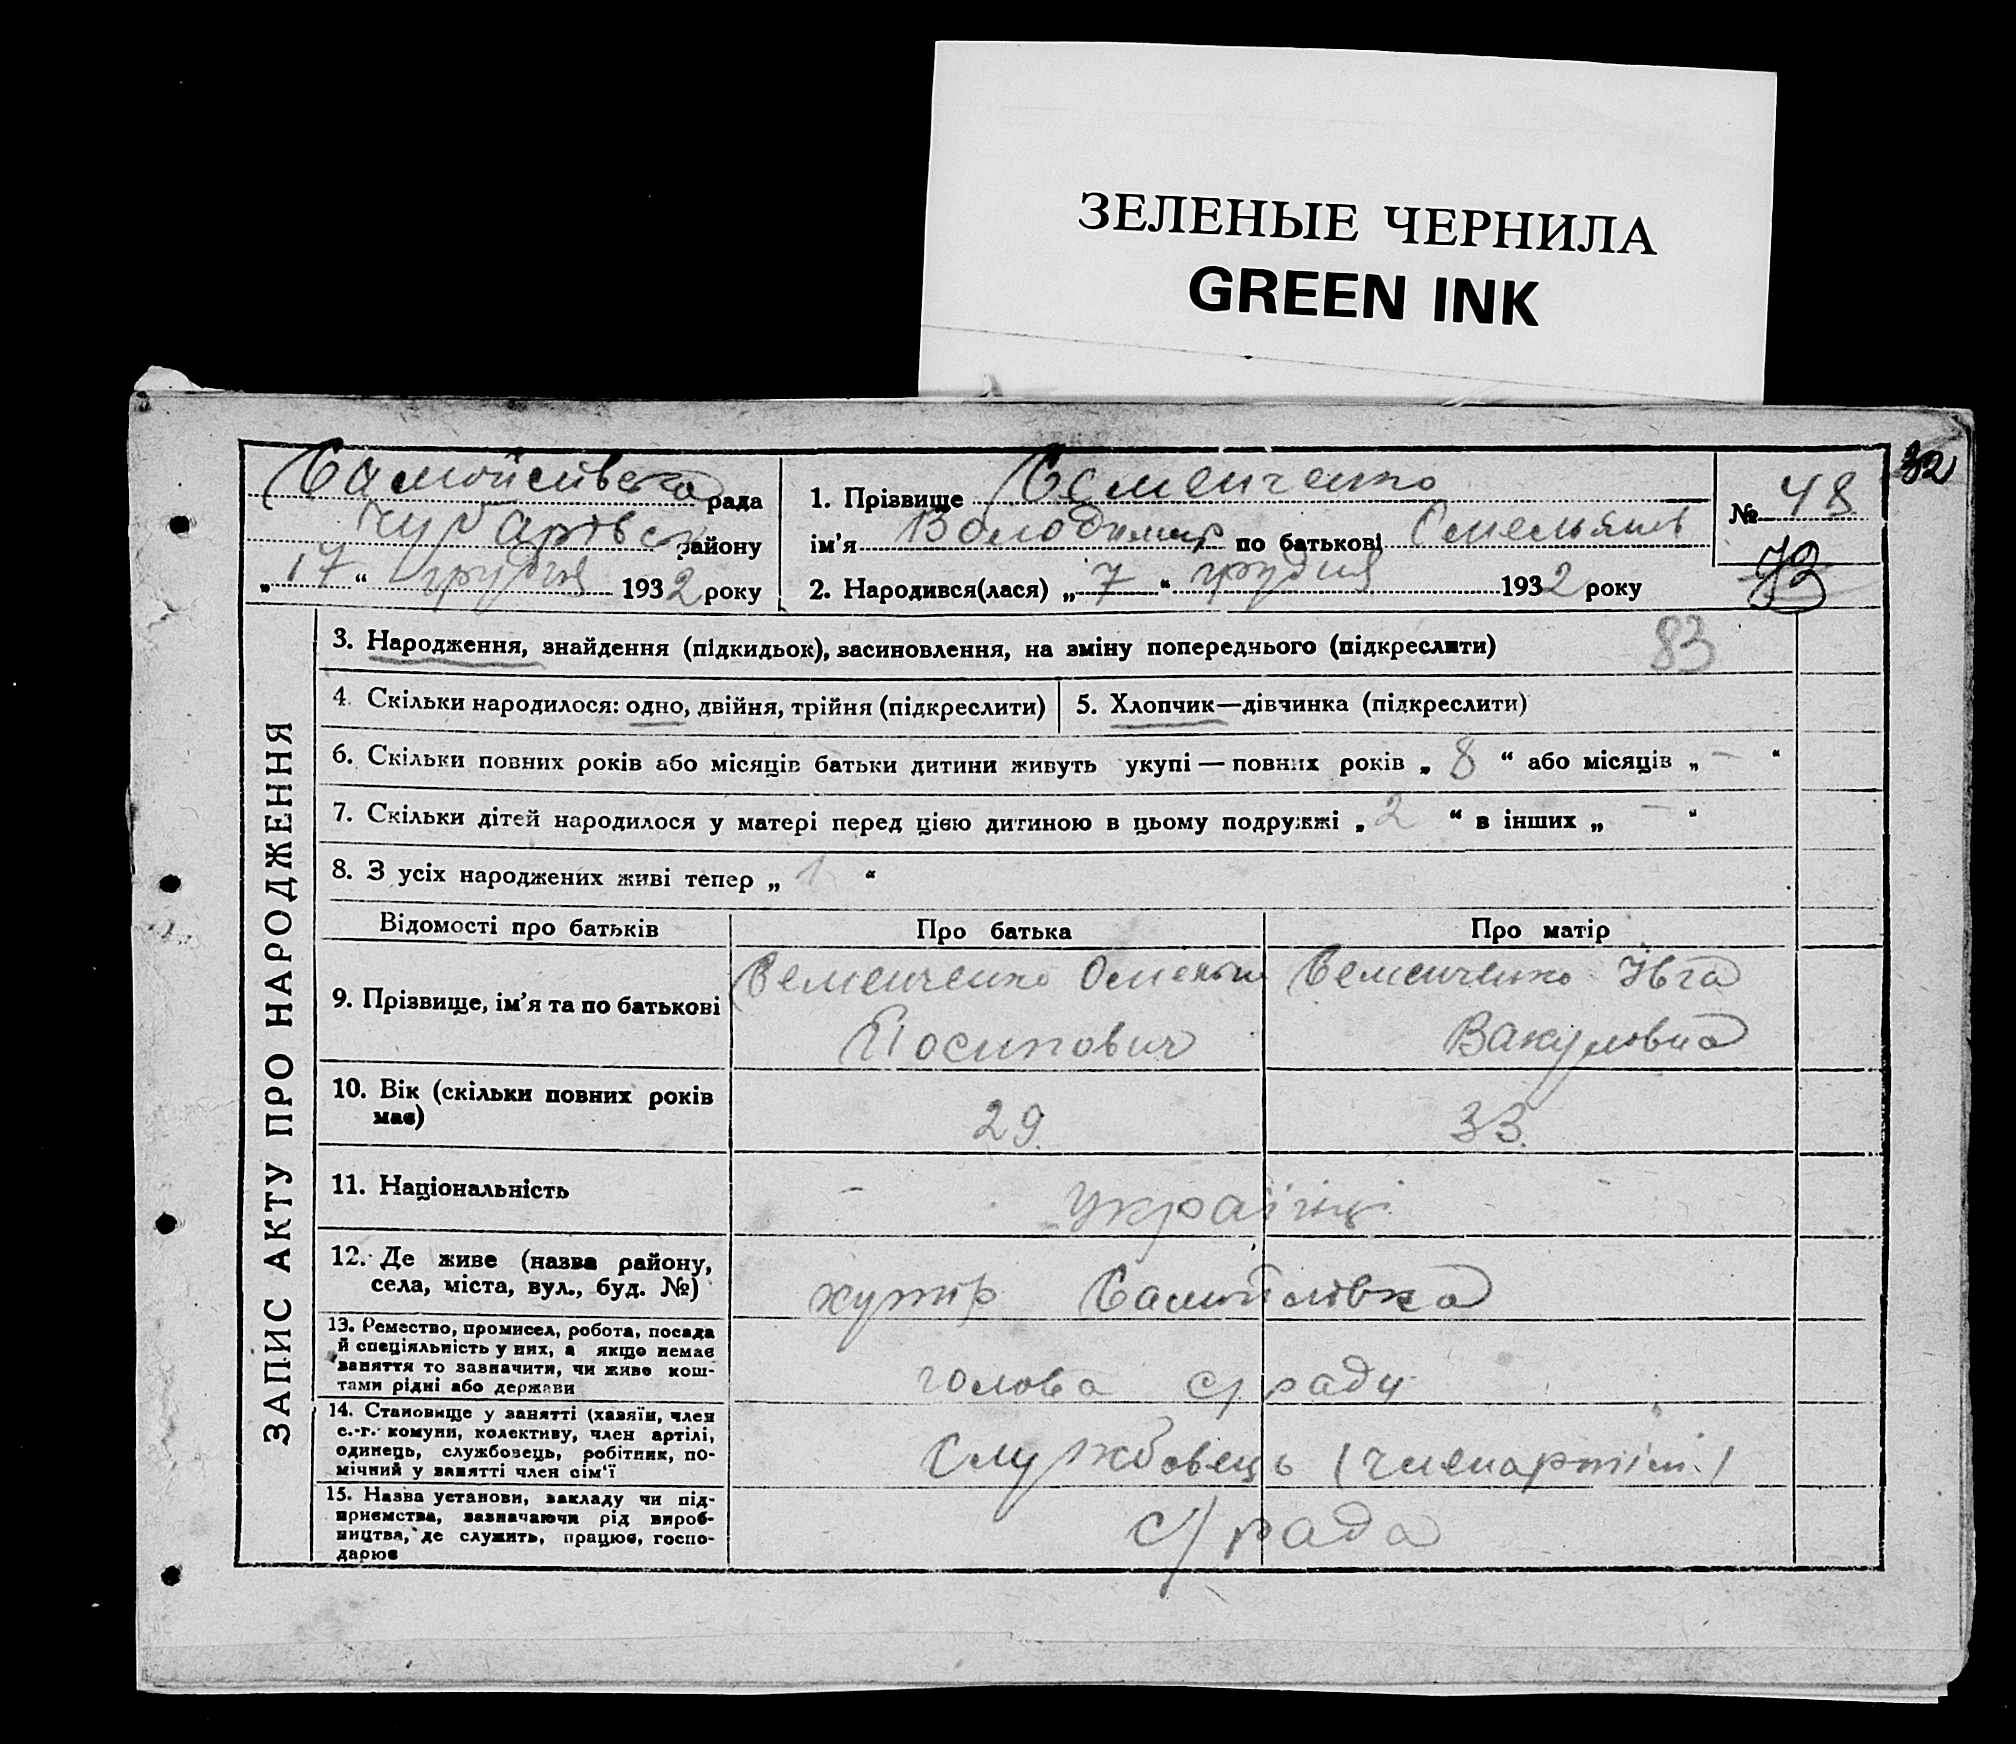 ЗЕЛЕНЫЕ ЧЕРНИЛА
GREEN INK
32
Самойлівська рада
Чубарівськ району
„17“ грудня 1932 року
1. Прізвище Семенченко
ім’я Володимир по батькові Омельянів
2. Народився(лася) „7“ грудня 1932 року
№ 48
73
83
ЗАПИС АКТУ ПРО НАРОДЖЕННЯ
3. Народження, знайдення (підкидьок), засиновлення, на зміну попереднього (підкреслити)
4. Скільки народилося: одно, двійня, трійня (підкреслити)
5. Хлопчик—дівчинка (підкреслити)
6. Скільки повних років або місяців батьки дитини живуть укупі — повних років „ 8 “ або місяців „ – “
7. Скільки дітей народилося у матері перед цією дитиною в цьому подружжі „ 2 “ в інших „ – “
8. З усіх народжених живі тепер „ 1 “
Відомості про батьків
Про батька
Про матір
9. Прізвище, ім’я та по батькові
Семенченко Омельян
Йосипович
Семенченко Ївга
Вакуловна
10. Вік (скільки повних років
має)
29.
33.
11. Національність
українці
12. Де живе (назва району,
села, міста, вул., буд. №)
хутір Самойлівка
13. Ремество, промисел, робота, посада
й спеціяльність у них, а якщо немає
заняття то зазначити, чи живе кош-
тами рідні або держави
голова с/ради
14. Становище у занятті (хазяїн, член
с.-г. комуни, колективу, член артілі,
одинець, службовець, робітник, по-
мічний у занятті член сім'ї
службовець (член артілі)
15. Назва установи, закладу чи під-
приємства, зазначаючи рід вироб-
ництва, де служить, працює, госпо-
дарює
с/рада